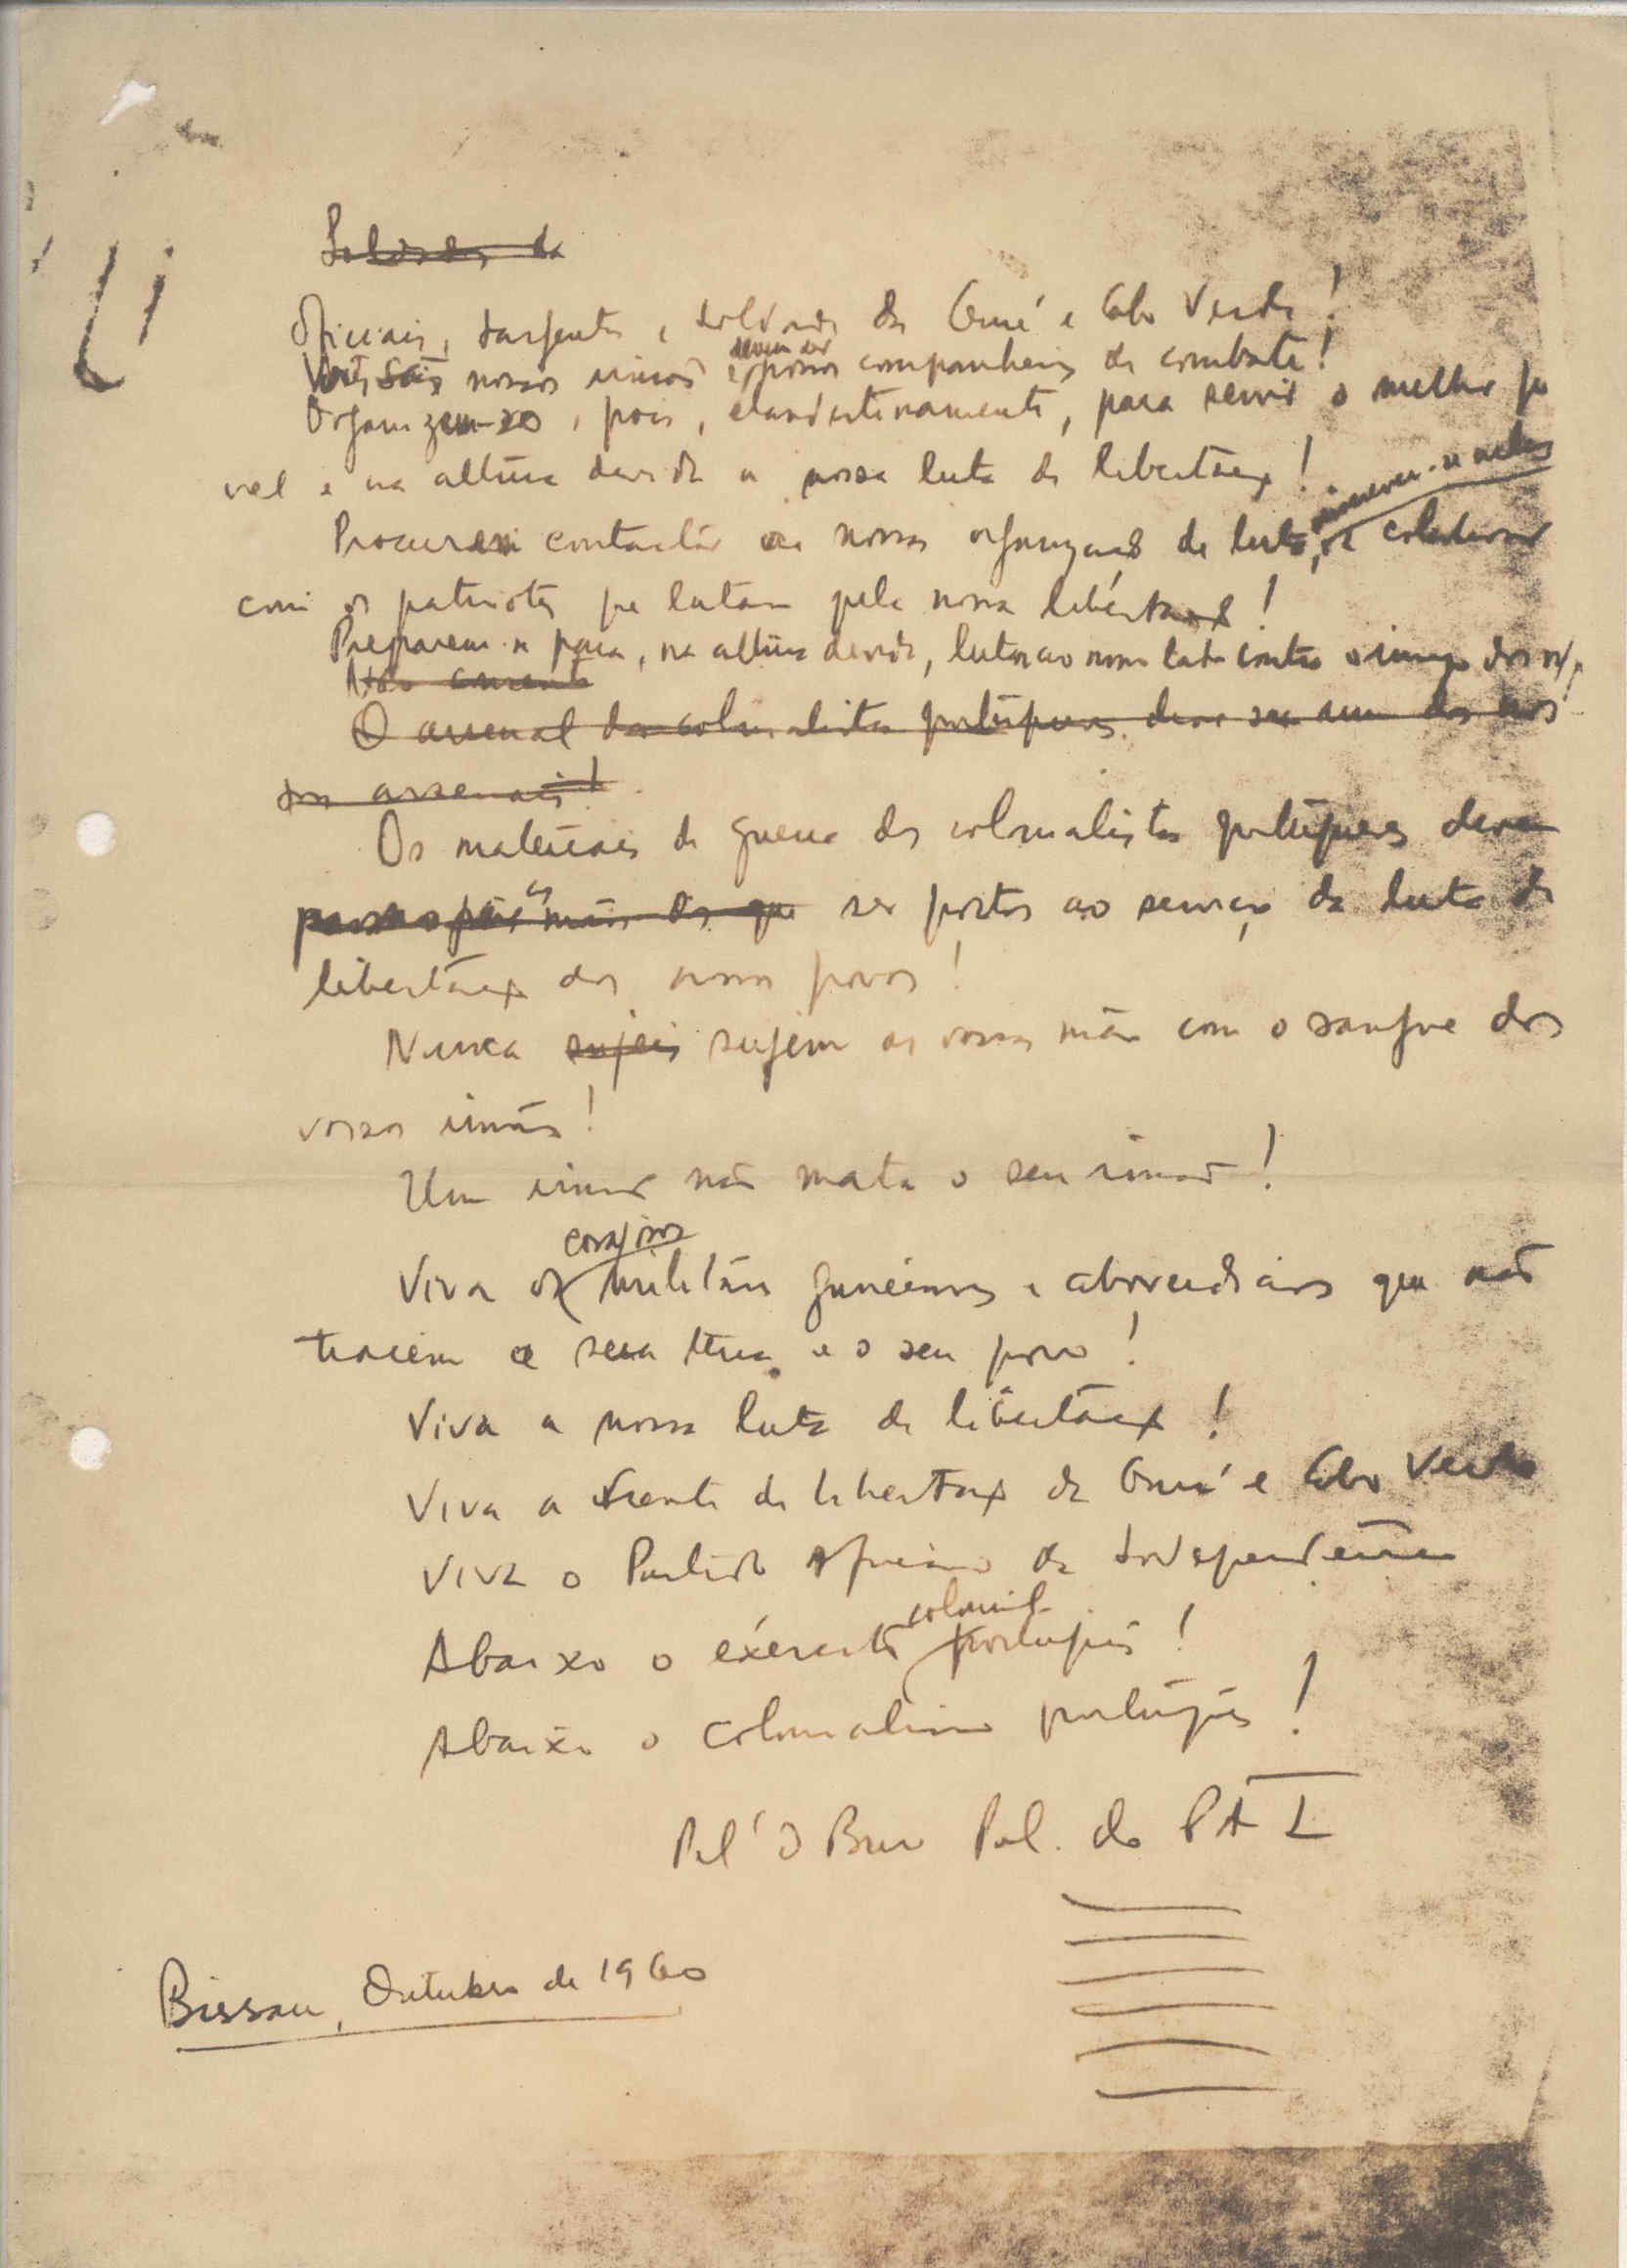 Soldados da
Oficiais, sargentos e soldados da Guiné e Cabo Verde!
Vocês são nossos irmãos e devem ser nossos companheiros de combate!
Organizem-se, pois, clandestinamente, para servir o melhor
vel e na altura devida a nossa luta de libertação!
Procurem contactar as nossas organizações de luta, inscrever-se nelas e colaborar
com os patriotas que lutam pela nossa libertação!
Preparem-se para, na altura devida, lutar ao nosso lado contra o inimigo dos n/
Não
O arsenal dos colonialistas portugueses deve ser um dos nos-
sos arsenais!
Os materiais de guerra dos colonialistas portugueses devem
passar para as mãos dos que ser postos ao serviço da luta de
libertação dos nossos povos!
Nunca sujeis sujem as vossas mãos com o sangue dos
vossos irmãos!
Um irmão não mata o seu irmão!
Viva os corajosos militares guineenses e caboverdianos que não
traiem a sua terra e o seu povo!
Viva a nossa luta de libertação!
Viva a Frente de Libertação da Guiné e Cabo Verde
Viva o Partido Africano da Independência
Abaixo o exército colonial português!
Abaixo o colonialismo português!
Pel'O Bur Pol. do PAI
Bissau, Outubro de 1960